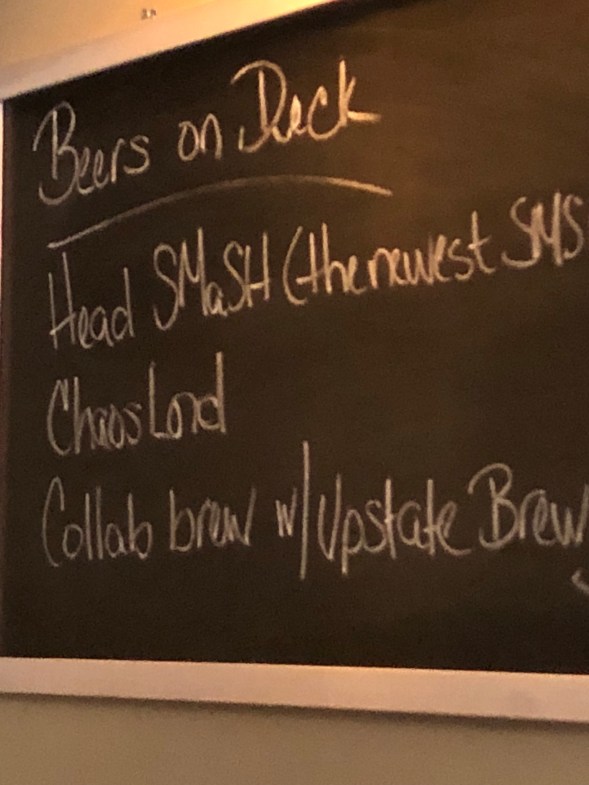 Beers on Deck
Head SMaSH (the newest SMS
Chaos Lord
Collab brew w/ Upstate Brew